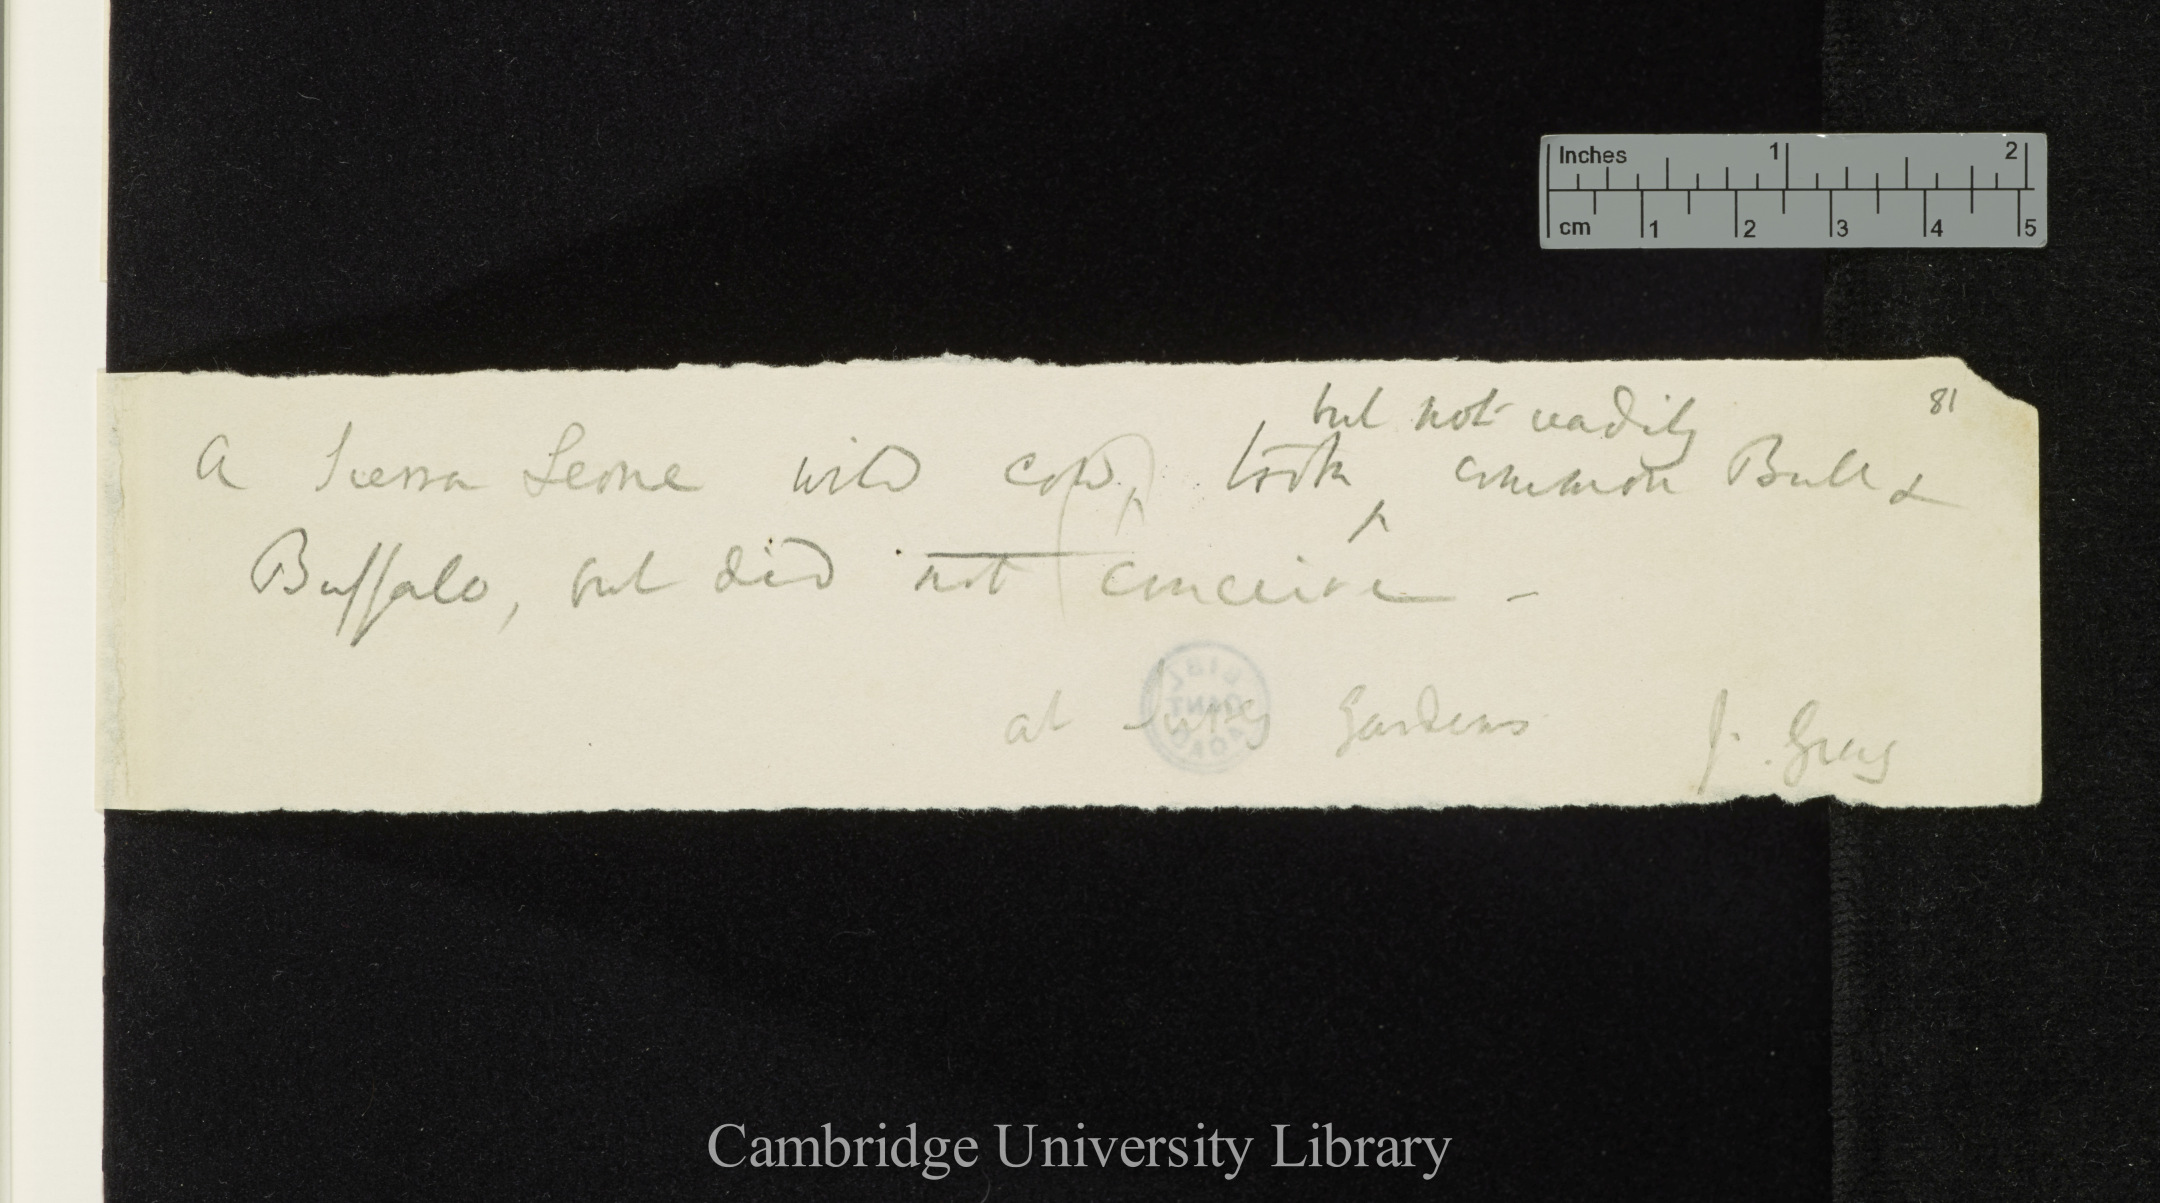 Inches 1 2
cm 1 2 3 4 5
81
but not readily
A Sierra Leone wild cow, took ^ common Bull &
Buffalo, but did not conceive –
at Gardens J. Gray
Cambridge University Library